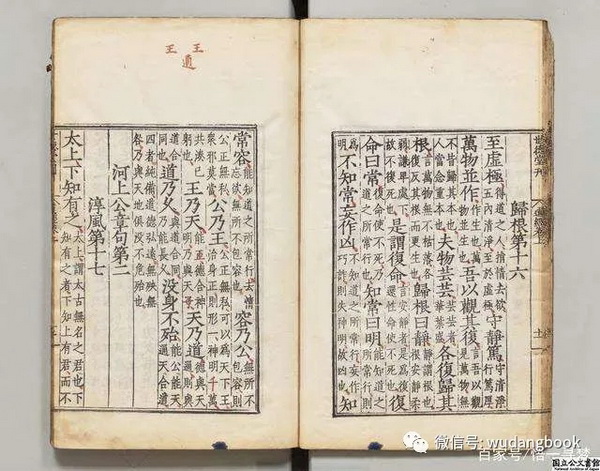 歸根第十六
至虛極得道之人捐情去欲五內清淨至於虛極守靜篤守清淨行篤厚
萬物並作作生也萬物並生也吾以觀其復言吾以觀見萬物無
不皆歸其本也人當念重本也夫物芸芸芸芸者華葉盛各復歸其
根言萬物無不枯落各復反其根而更生也歸根曰靜靜謂根也根安靜柔
弱謙卑處下故不復死也是謂復命言安靜者是為復還性命使不死也復
命曰常復命使不死乃道之所常行也知常曰明能知道之所常行則
為明不知常妄作凶不知道之所常行妄作巧詐則失神明故凶也知
常容能知道之所常行去情忘欲無所不包容也容乃公無所不包容則
公正無私眾邪莫當公乃王公正無私可以為天下王治身正則形一神明千萬
共湊已躬也王乃天能王德合神明乃與天通天乃道德與天通則與
道合同也道乃久與道合同乃能長久没身不殆能公能王通天合道
四者純備道德弘遠無殃無咎乃與天地俱没不危殆也
河上公章句第二
淳風第十七
太上下知有之太上謂太古無名之君也下知有之者下知上有君而不
世德堂刊
王
王
微信号: wudangbook
国立公文書館